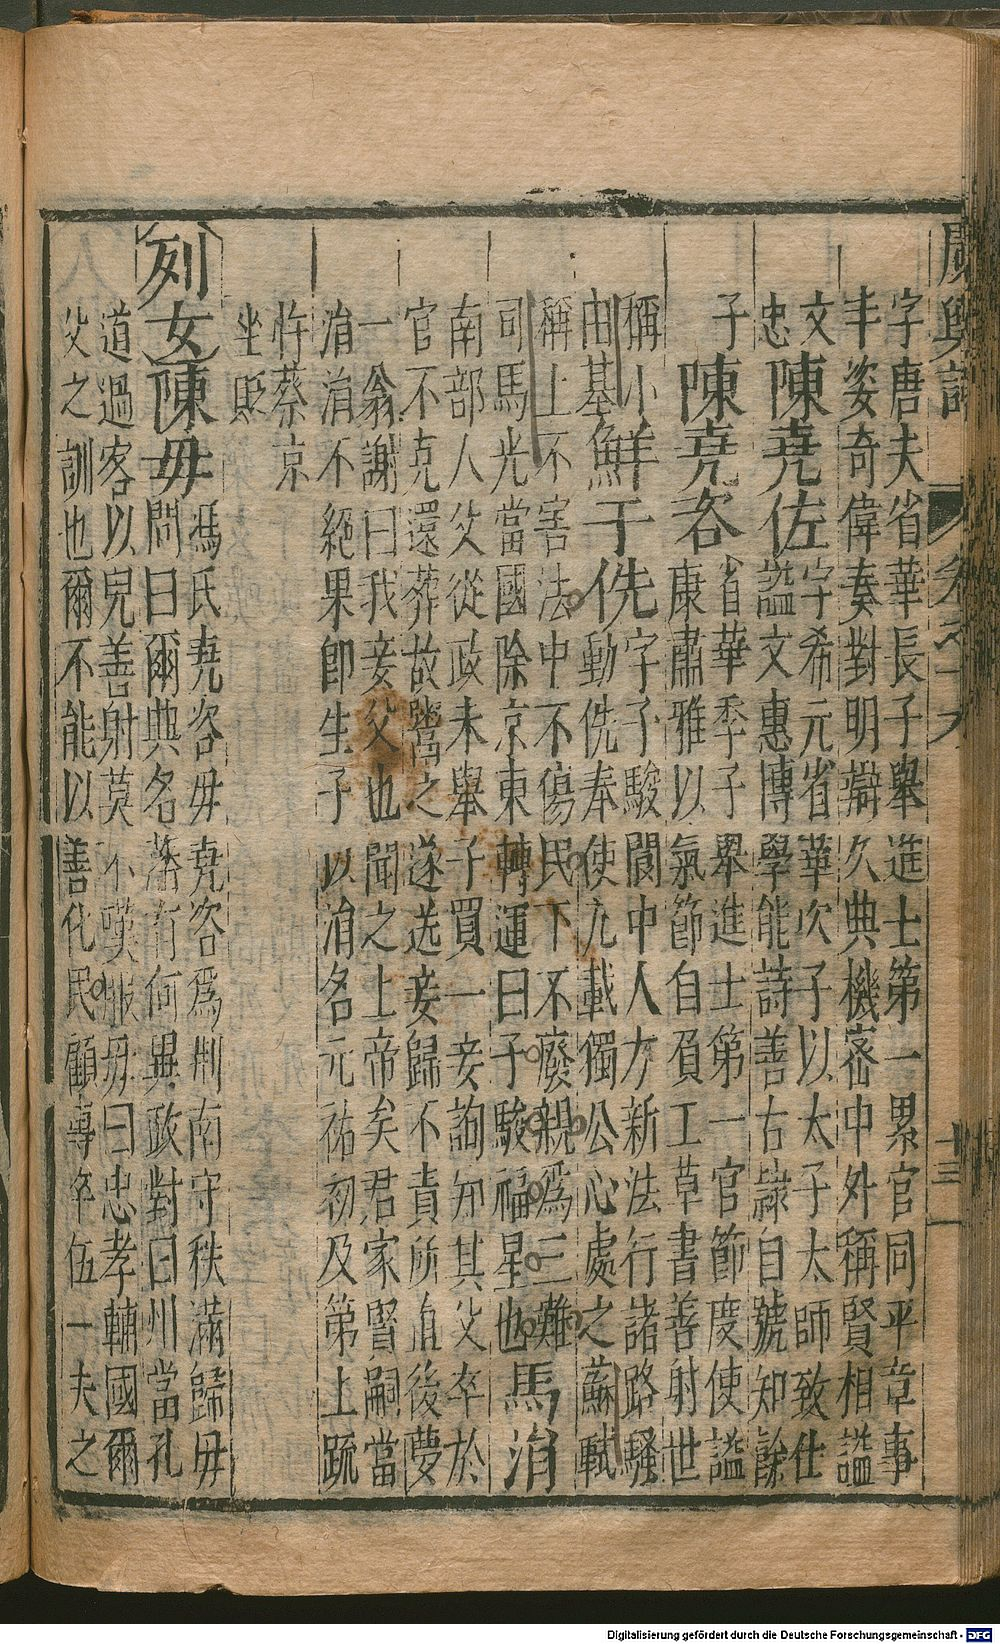 廣輿記
卷之十六
十三
字唐夫省華長子舉進士第一累官同平章事
丰姿奇偉奏對明辯久典機密中外稱賢相謚
文
忠
陳堯佐
字希元省華次子以太子太師致仕
謚文惠博學能詩善古隸自號知餘
子
陳堯咨
省華季子舉進士第一官節度使謚
康肅雅以氣節自負工草書善射世
稱小
由基
鮮于侁
字子駿閬中人方新法行諸路騷
動侁奉使九載獨公心處之蘇軾
稱上不害法中不傷民下不廢親爲三難
司馬光當國除京東轉運曰子駿福星也
馬涓
南部人父從政未舉子買一妾詢知其父卒於
官不克還葬故鬻之遂送妾歸不責所直後夢
一翁謝曰我妾父也聞之上帝矣君家賢嗣當
涓涓不絕果卽生子以涓名元祐初及第上疏
忤蔡京
坐貶
列女
陳母
馮氏堯咨母堯咨爲荆南守秩滿歸母
問曰爾典名藩有何異政對曰州當孔
道過客以兒善射莫不嘆服母曰忠孝輔國爾
父之訓也爾不能以善化民顧專卒伍一夫之
Digitalisierung gefördert durch die Deutsche Forschungsgemeinschaft - DFG